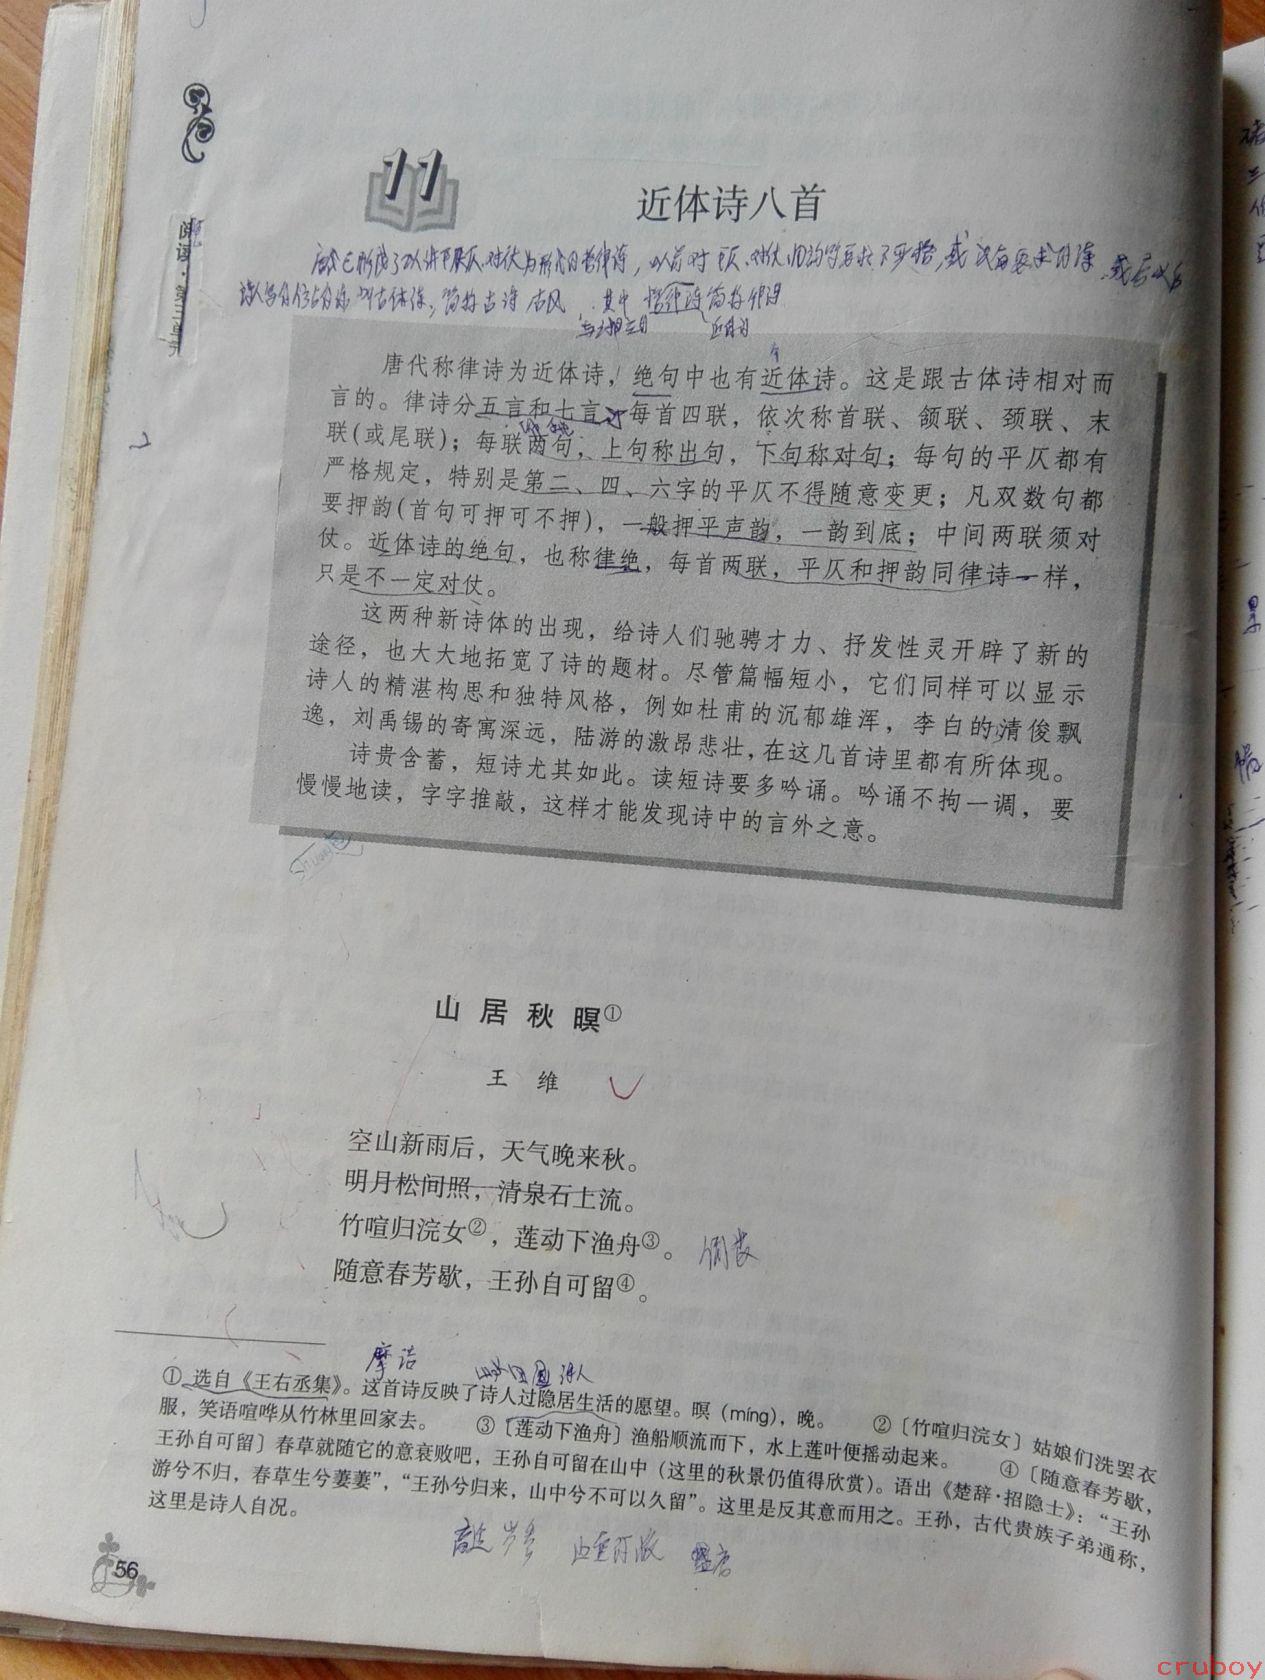 阅读·第三单元
11
近体诗八首
唐代称律诗为近体诗,绝句中也有近体诗。这是跟古体诗相对而
言的。律诗分五言和七言,每首四联,依次称首联、颔联、颈联、末
联(或尾联);每联两句,上句称出句,下句称对句;每句的平仄都有
严格规定,特别是第二、四、六字的平仄不得随意变更;凡双数句都
要押韵(首句可押可不押),一般押平声韵,一韵到底;中间两联须对
仗。近体诗的绝句,也称律绝,每首两联,平仄和押韵同律诗一样,
只是不一定对仗。
这两种新诗体的出现,给诗人们驰骋才力、抒发性灵开辟了新的
途径,也大大地拓宽了诗的题材。尽管篇幅短小,它们同样可以显示
诗人的精湛构思和独特风格,例如杜甫的沉郁雄浑,李白的清俊飘
逸,刘禹锡的寄寓深远,陆游的激昂悲壮,在这几首诗里都有所体现。
诗贵含蓄,短诗尤其如此。读短诗要多吟诵。吟诵不拘一调,要
慢慢地读,字字推敲,这样才能发现诗中的言外之意。
山居秋暝①
王 维
空山新雨后,天气晚来秋。
明月松间照,清泉石上流。
竹喧归浣女②,莲动下渔舟③。
随意春芳歇,王孙自可留④。
摩诘
①选自《王右丞集》。这首诗反映了诗人过隐居生活的愿望。暝(míng),晚。 ②〔竹喧归浣女〕姑娘们洗罢衣
服,笑语喧哗从竹林里回家去。 ③〔莲动下渔舟〕渔船顺流而下,水上莲叶便摇动起来。 ④〔随意春芳歇,
王孙自可留〕春草就随它的意衰败吧,王孙自可留在山中(这里的秋景仍值得欣赏)。语出《楚辞·招隐士》:“王孙
游兮不归,春草生兮萋萋”,“王孙兮归来,山中兮不可以久留”。这里是反其意而用之。王孙,古代贵族子弟通称,
这里是诗人自况。
56
cruboy